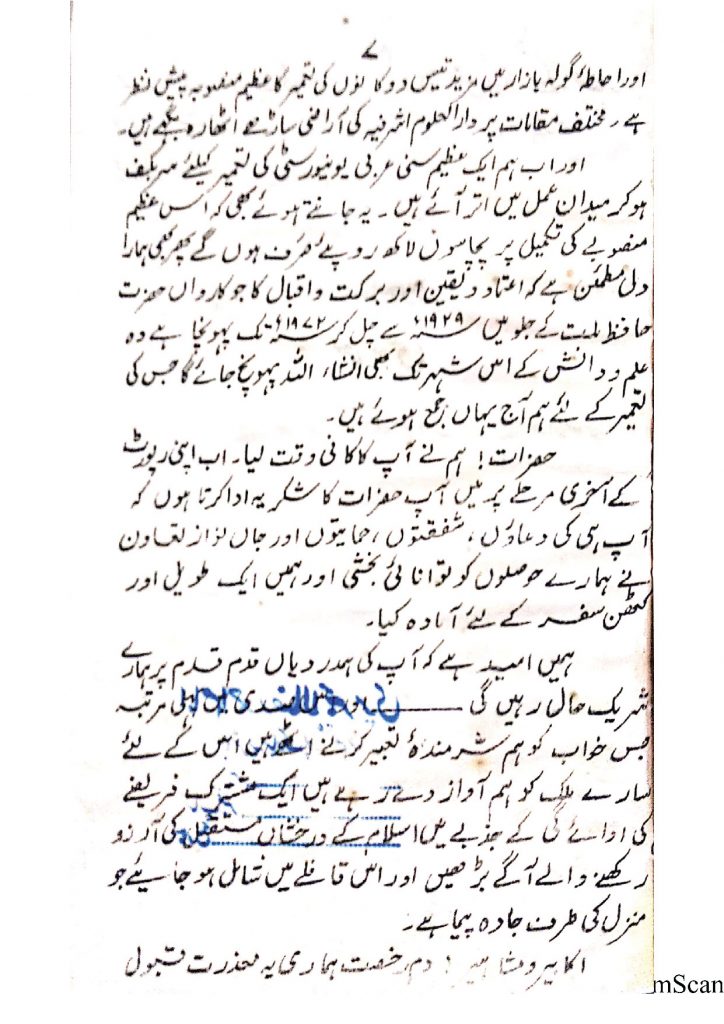 ۷
اور احاطۂ گولہ بازار میں مزید تیس دوکانوں کی تعمیر کا عظیم منصوبہ پیش نظر
ہے۔ مختلف مقامات پر دارالعلوم اشرفیہ کی آراضی ساڑھے اٹھارہ بیگھے ہیں۔
اور اب ہم ایک عظیم سنی عربی یونیورسٹی کی تعمیر کیلئے سر بکف
ہوکر میدان عمل میں اتر آئے ہیں۔ یہ جانتے ہوئے بھی کہ اس عظیم
منصوبے کی تکمیل پر پچاسوں لاکھ روپئے صرف ہوں گے پھر بھی ہمارا
دل مطمئن ہے کہ اعتماد و یقین اور برکت و اقبال کا جو کارواں حضرت
حافظ ملت کے جلو میں ۱۹۲۹ء سے چل کر ۱۹۷۲ء تک پہونچا ہے وہ
علم و دانش کے اس شہر تک بھی انشاء اللہ پہونچ جائے گا جس کی
تعمیر کے لئے ہم آج یہاں جمع ہوئے ہیں۔
حضرات! ہم نے آپ کا کافی وقت لیا۔ اب اپنی رپورٹ
کے آخری مرحلے پر میں آپ حضرات کا شکریہ ادا کرتا ہوں کہ
آپ ہی کی دعاؤں، شفقتوں، حمایتوں اور جاں نواز تعاون
نے ہمارے حوصلوں کو توانائی بخشی اور ہمیں ایک طویل اور
کٹھن سفر کے لئے آمادہ کیا۔
ہمیں امید ہے کہ آپ کی ہمدردیاں قدم قدم پر ہمارے
شریک حال رہیں گی ـــــــ صدی میں پہلی مرتبہ
جس خواب کو ہم شرمندۂ تعبیر کرنے اٹھے ہیں اس کے لئے
سارے ملک کو ہم آواز دے رہے ہیں ایک مشترک فریضے
کی ادائے گی کے جذبے میں اسلام کے درخشاں مستقبل کی آرزو
رکھنے والے آگے بڑھیں اور اس قافلے میں شامل ہو جائیے جو
منزل کی طرف جادہ پیما ہے۔
اکابر و مشاہیر! دم رخصت ہماری یہ معذرت قبول
mScan